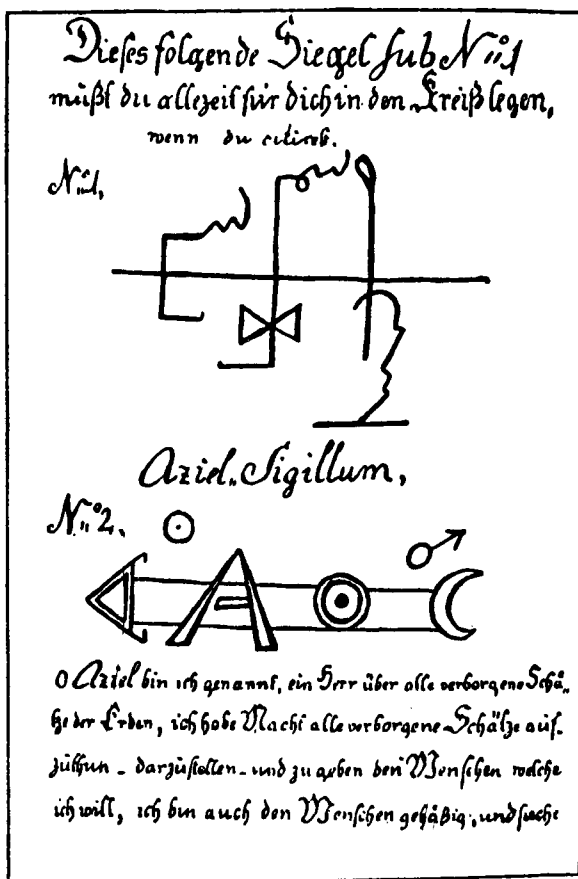 Dieses folgende Siegel sub N:1
müßt du allezeit für dich in den Kreiß legen,
wenn du citirest.
N:1,
Aziel. Sigillum,
N:2.
O Aziel bin ich genannt, ein Herr über alle verborgene Schä-
tze der Erden, ich habe Macht alle verborgene Schätze auf-
züthun - darzüstellen - und zu geben den Menschen welche
ich will, ich bin auch den Menschen gehäßig, und suche